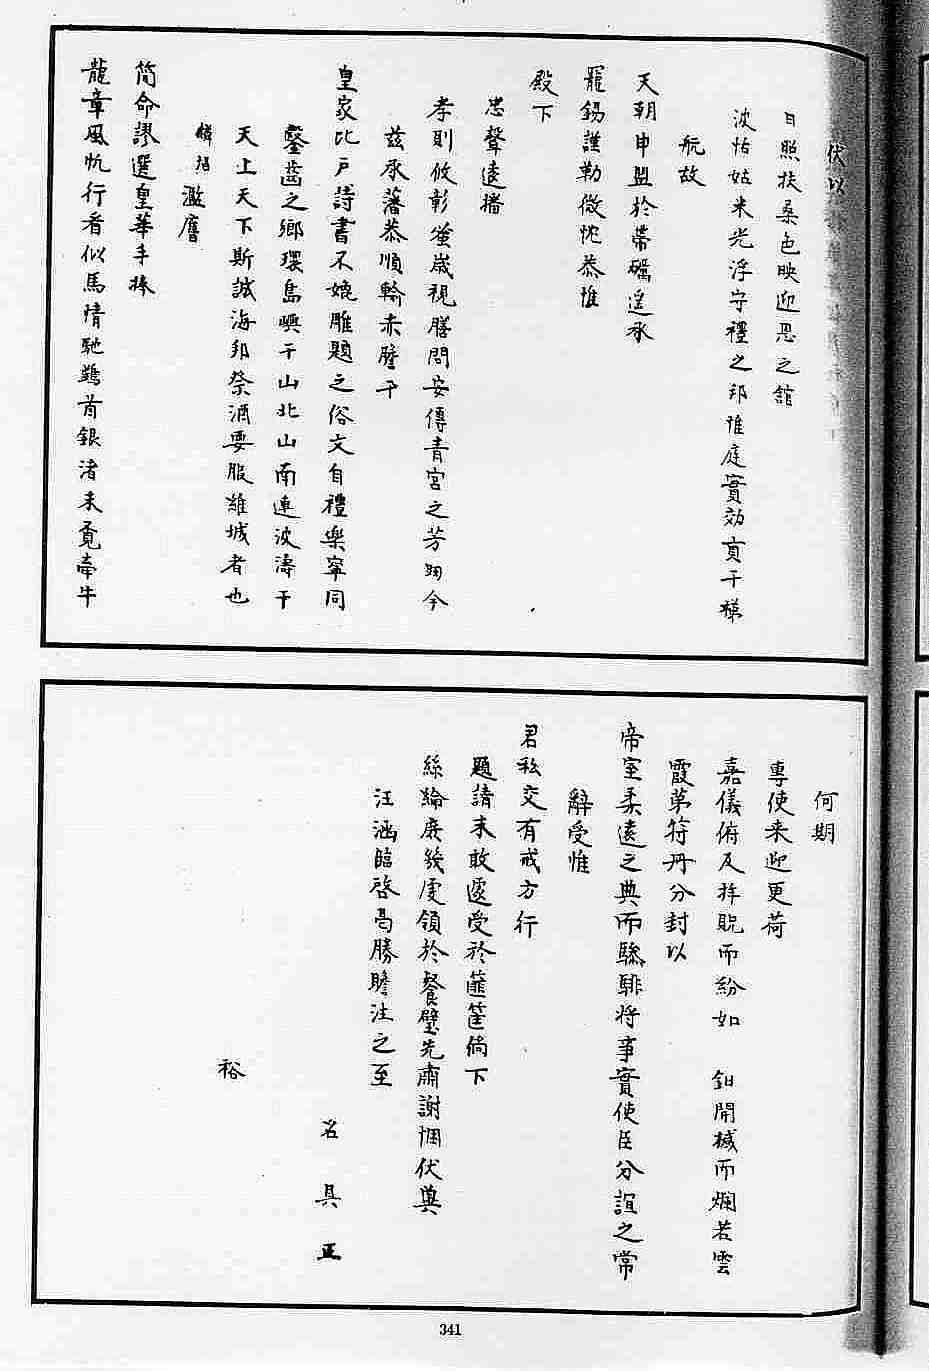 伏以
日照扶桑色映迎恩之館
波恬姑米光浮守禮之邦惟庭實効貢于梯
航故
天朝申盟於帶礪遙承
寵錫謹勒微忱恭惟
殿下
忠聲遠播
孝則攸彰蚤歲視膳問安傳青宮之芳躅今
茲承藩恭順輸赤膽于
皇家比戶詩書不媿雕題之俗文自禮樂寧同
鑿齒之鄉環島嶼于山北山南連波濤于
天上天下斯誠海邦祭酒要服維城者也
濫膺
簡命謬選皇華手捧
龍章風帆行看似馬情馳鷁首銀渚未覓牽牛
何期
專使来迎更荷
嘉儀俯及拜貺而紛如 釦開椷而爛若雲
霞苐符丹分封以
帝室柔遠之典而驂騑將事實使臣分誼之常
辭受惟
君私交有戒方行
題請未敢遽受於篚筐倘下
絲綸庶幾虔領於餐璧先肅謝悃伏兾
汪涵臨啓曷勝瞻注之至
名具正
裕
341